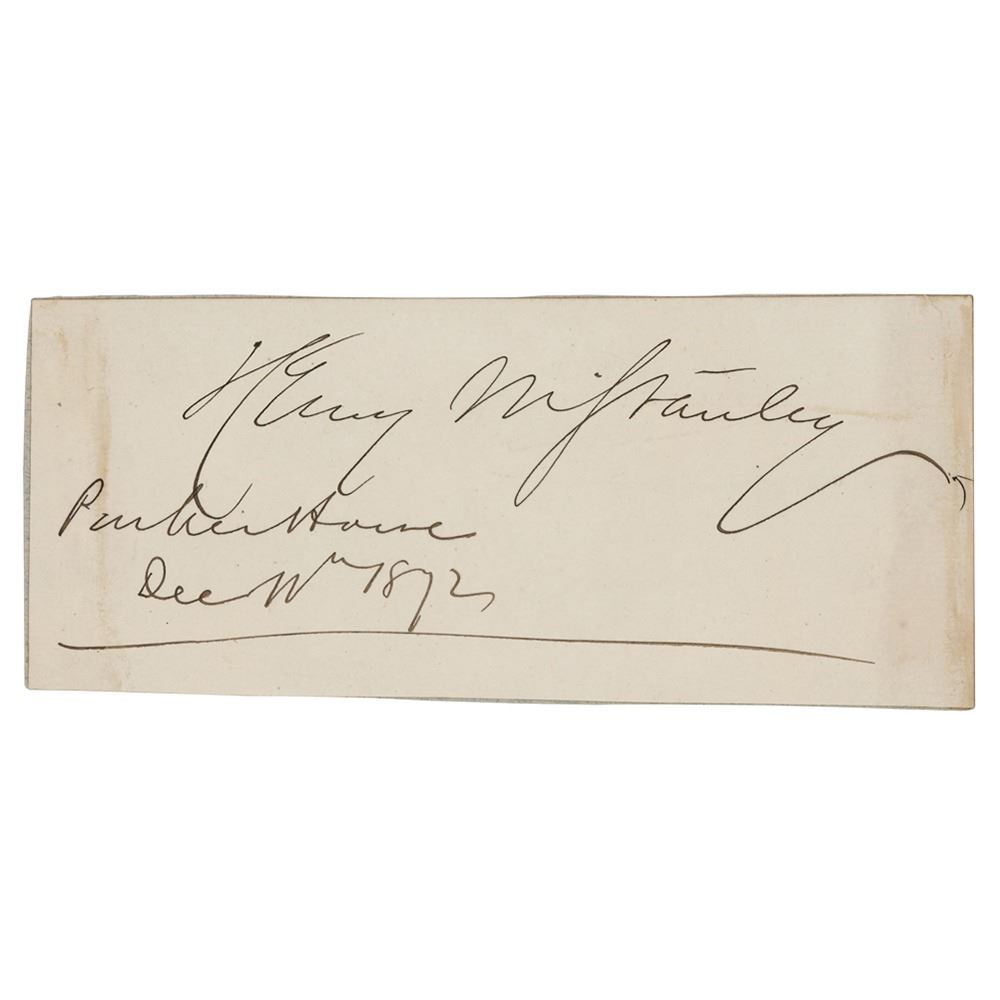 Henry M. Stanley
Parker House
Dec 11th 1872